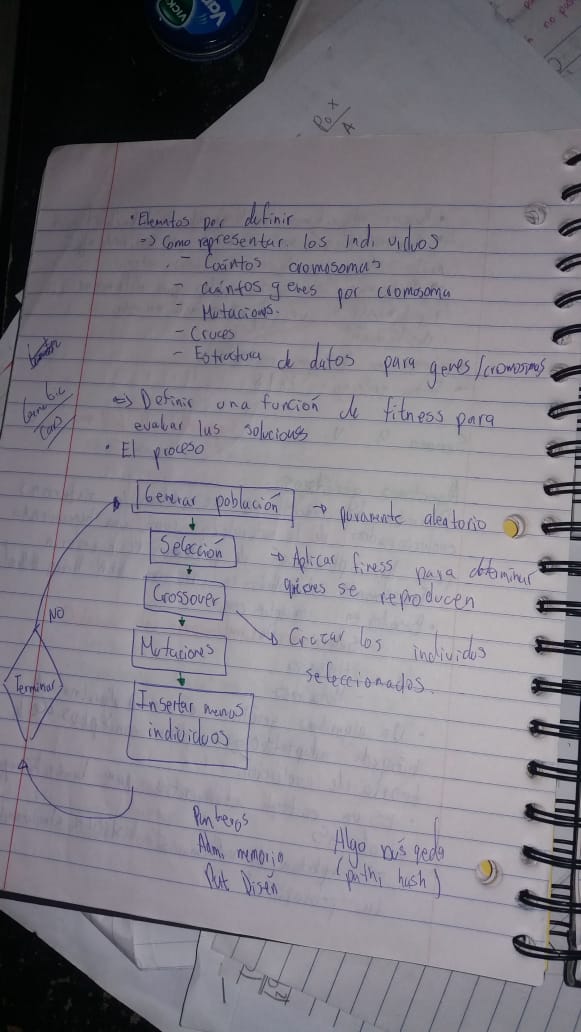 VICK
Va
P0 X
A
• Elementos por definir
=> Como representar los individuos
- Cuántos cromosomas
- cuántos genes por cromosoma
- Mutaciones.
- Cruces
- Estructura de datos para genes/cromosomas
=> Definir una función de fitness para
evaluar las soluciones
• El proceso
Generar población → puramente aleatorio
Selección → Aplicar finess para determinar
quienes se reproducen
Crossover
NO
Mutaciones → Cruzar los individos
seleccionados.
Terminar
Insertar
individuos
Punteros
Adm. memoria
Algo
(path, hash)